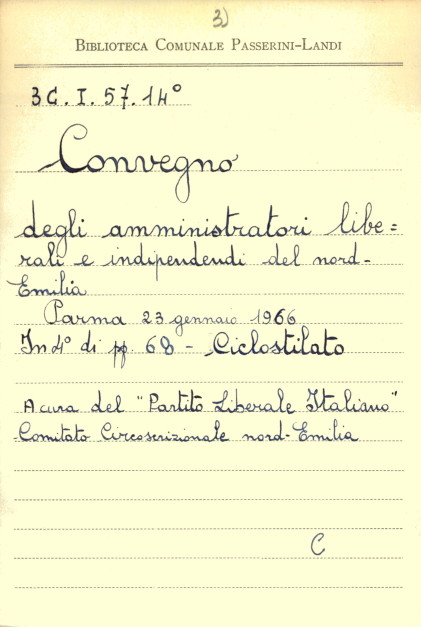 3)
BIBLIOTECA COMUNALE PASSERINI-LANDI
3C. I. 57. 14°
Convegno
degli amministratori libe=
rali e indipendendi del nord-
Emilia
Parma 23 gennaio 1966
In 4° di pp. 68 - Ciclostilato
A cura del "Partito Liberale Italiano"
Comitato Circoscrizionale nord-Emilia
C